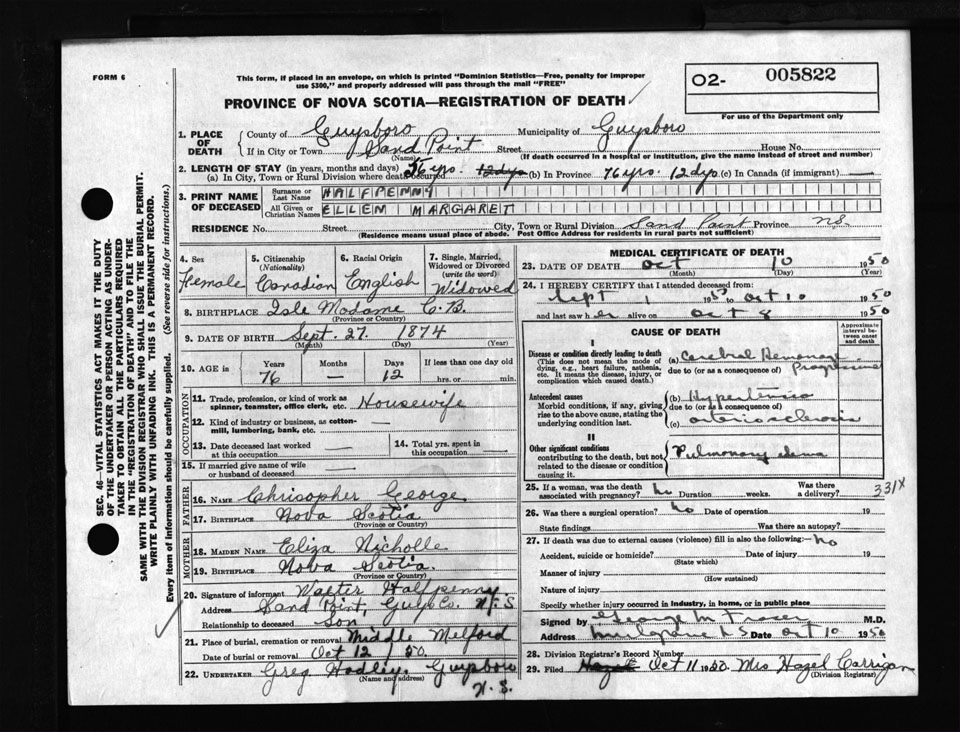 FORM 6
This form, if placed in an envelope, on which is printed "Dominion Statistics—Free, penalty for improper
use $300," and properly addressed will pass through the mail "FREE"
O2- 005822
For use of the Department only
PROVINCE OF NOVA SCOTIA—REGISTRATION OF DEATH
1. PLACE OF DEATH
County of Guysboro Municipality of Guysboro
If in City or Town Sand Point Street House No.
(Name) (If death occurred in a hospital or institution, give the name instead of street and number)
2. LENGTH OF STAY (in years, months and days)
(a) In City, Town or Rural Division where death occurred 56 yrs. 12 dys (b) In Province 76 yrs. 12 dys. (c) In Canada (if immigrant) —
3. PRINT NAME OF DECEASED
Surname or Last Name HALFPENNY
All Given or Christian Names ELLEN MARGARET
RESIDENCE No. Street City, Town or Rural Division Sand Point Province N.S.
(Residence means usual place of abode. Post Office Address for residents in rural parts not sufficient)
4. Sex Female
5. Citizenship (Nationality) Canadian
6. Racial Origin English
7. Single, Married, Widowed or Divorced (write the word) Widowed
8. BIRTHPLACE Isle Madame C.B.
(Province or Country)
9. DATE OF BIRTH Sept. 27. 1874
(Month) (Day) (Year)
10. AGE in Years 76 Months — Days 12 If less than one day hrs. or min.
OCCUPATION
11. Trade, profession, or kind of work as spinner, teamster, office clerk, etc. Housewife
12. Kind of industry or business, as cotton-mill, lumbering, bank, etc. —
13. Date deceased last worked at this occupation —
14. Total yrs. spent in this occupation —
15. If married give name of wife or husband of deceased —
FATHER
16. NAME Chrisopher George
17. BIRTHPLACE Nova Scotia
(Province or Country)
MOTHER
18. MAIDEN NAME Eliza Nicholle
19. BIRTHPLACE Nova Scotia.
(Province or Country)
20. Signature of informant Walter Halfpenny
Address Sand Point, Guys. Co. N.S
Relationship to deceased Son
21. Place of burial, cremation or removal Middle Melford
Date of burial or removal Oct 12 / 50
22. UNDERTAKER Greg Hadley Guysboro
(Name and address) N.S.
MEDICAL CERTIFICATE OF DEATH
23. DATE OF DEATH Oct 10 1950
(Month) (Day) (Year)
24. I HEREBY CERTIFY that I attended deceased from:
Sept 1 1950 to Oct 10 1950
and last saw her alive on Oct 8 1950
CAUSE OF DEATH
Approximate interval between onset and death
I
Disease or condition directly leading to death (a) Cerebral Hemorrage
(This does not mean the mode of dying, e.g., heart failure, asthenia, etc. It means the disease, injury, or complication which caused death.)
due to (or as a consequence of) Progressive
Antecedent causes (b) Hypertension
Morbid conditions, if any, giving rise to the above cause, stating the underlying condition last.
due to (or as a consequence of)
(c) arteriosclerosis
II
Other significant conditions
contributing to the death, but not related to the disease or condition causing it.
Pulmonary edema
25. If a woman, was the death associated with pregnancy? No Duration weeks. Was there a delivery?
331X
26. Was there a surgical operation? No Date of operation 19
State findings Was there an autopsy?
27. If death was due to external causes (violence) fill in also the following:— No
Accident, suicide or homicide? Date of injury 19
(State which)
Manner of injury
(How sustained)
Nature of injury
Specify whether injury occurred in industry, in home, or in public place
Signed by George M Fraser M.D.
Address Mulgrave N S Date Oct 10 1950
28. Division Registrar's Record Number
29. Filed Oct 11 1950. Mrs Hazel Carrigan
(Division Registrar)
SEC. 46—VITAL STATISTICS ACT MAKES IT THE DUTY
OF THE UNDERTAKER OR PERSON ACTING AS UNDER-
TAKER TO OBTAIN ALL THE PARTICULARS REQUIRED
IN THE "REGISTRATION OF DEATH" AND TO FILE THE
SAME WITH THE DIVISION REGISTRAR WHO SHALL ISSUE THE BURIAL PERMIT.
WRITE PLAINLY WITH UNFADING INK - THIS IS A PERMANENT RECORD.
Every item of information should be carefully supplied. (See reverse side for instructions.)